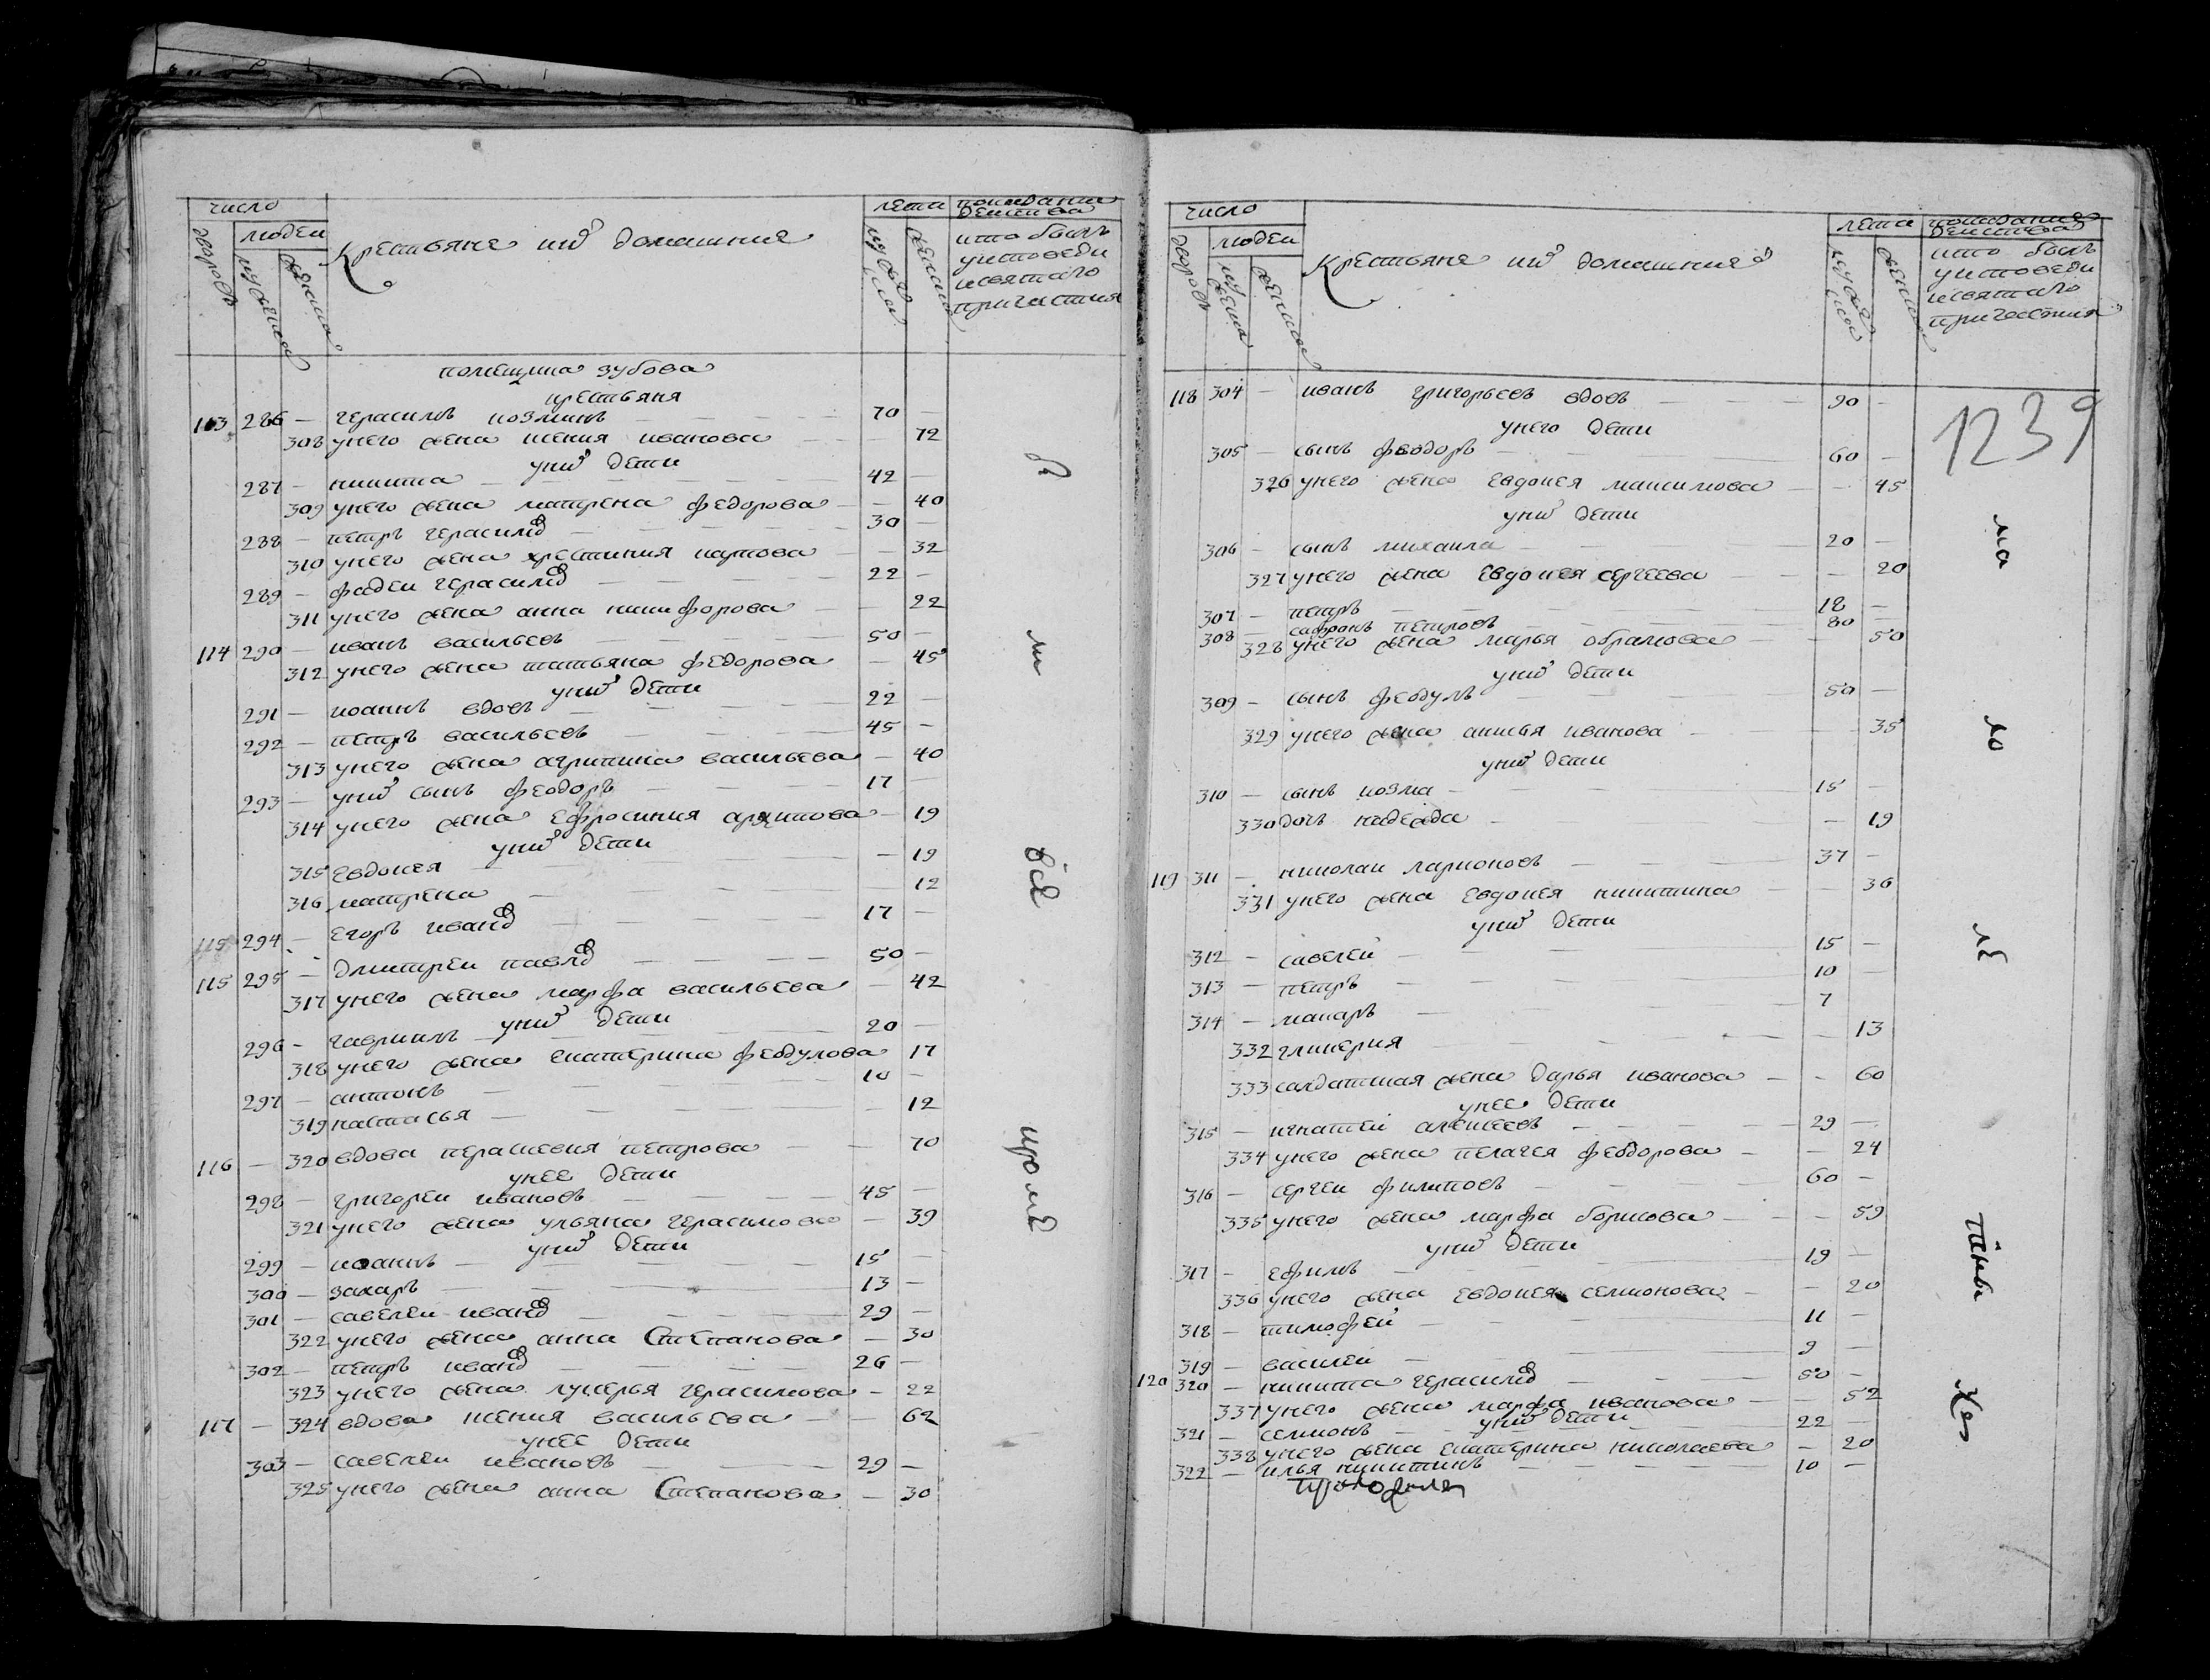 число
людеи
дворовъ
мужеска
женска
Крестьяне ихъ домашние
лета
мужеска
женска
покаянии действа
хто былъ
уисповеди
исвятаго
причастия
помещика зубова
крестьяня
113 286 — герасимъ козминъ — 70 —
308 унего жена ксения иванова — 72
унихъ дети
287 — никита — 42 —
309 унего жена матрена федорова — 40
288 — петръ герасимо 30 —
310 унего жена хрестиния карпова — 32
289 — фадеи герасимо 22 —
311 унего жена анна никифорова — 22
114 290 — иванъ васильевъ 50 —
312 унего жена татьяна федорова — 45
унихъ дети
291 — иоаннъ вдовъ 22 —
292 — петръ васильевъ 45 —
313 унего жена агрипина васильева — 40
293 — унихъ сынъ феодоръ 17 —
314 унего жена Ефросиния архипова — 19
унихъ дети
315 евдокея — 19
316 матрена 12
115 294 — егоръ ивано 17 —
115 295 — дмитреи павло 50 —
317 унего жена марфа васильева — 42
унихъ дети
296 — гавриилъ 20 —
318 унего жена екатерина феодулова 17
297 — антонъ 10 —
319 настасья — 12
116 — 320 вдова парасковия петрова — 70
унее дети
298 — григореи ивановъ 45 —
321 унего жена ульяна герасимова — 39
унихъ дети
299 — иоаннъ 15 —
300 — захаръ 13 —
301 — савелеи ивано 29 —
322 унего жена анна Степанова — 30
302 — петръ ивано 26 —
323 унего жена лукерья герасимова — 22
117 — 324 вдова ксения васильева — 62
унее дети
303 — савелеи ивановъ 29 —
325 унего жена анна Степанова — 30
число
людеи
дворовъ
мужеска
женска
Крестьяне ихъ домашние
лета
мужеска
женска
покаяния действа
хто былъ
уисповеди
исвятаго
причастия
1239
118 304 — иванъ григорьевъ вдовъ 90 —
унего дети
305 — сынъ феодоръ 60 —
326 унего жена евдокея максимова — 45
унихъ дети
306 — сынъ михаила 20 —
327 унего жена евдокея сергеева — 20
307 — петръ 18 —
308 — сафронъ петровъ 80 —
328 унего жена марья обрамова — 50
унихъ дети
309 — сынъ феодулъ 50 —
329 унего жена анисья иванова — 35
унихъ дети
310 — сынъ козма 15 —
330 дочь надежда — 19
119 311 — николаи ларионовъ 37 —
331 унего жена евдокея никитина — 36
унихъ дети
312 — савелеи 15 —
313 — петръ 10 —
314 — макаръ 7
332 гликерия — 13
333 салдатская жена дарья иванова — 60
унее дети
315 — игнатеи алексеевъ 29 —
334 унего жена пелагея феодорова — 24
316 — сергеи филиповъ 60 —
335 унего жена марфа борисова — 59
унихъ дети
317 — ефимъ 19 —
336 унего жена евдокея семионова — 20
318 — тимофеи 11 —
319 — василеи 9 —
120 320 — никита герасимо 50 —
337 унего жена марфа иванова — 52
унихъ дети
321 — семионъ 22 —
338 унего жена екатерина николаева — 20
322 — илья никитинъ 10 —